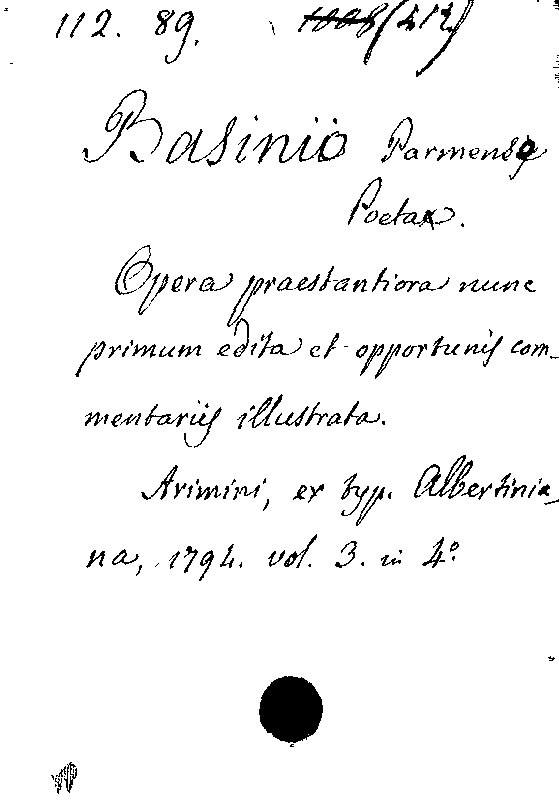 112. 89. 1008 (212)
Basinio Parmense
Poeta.
Opera praestantiora nunc
primum edita et opportunis com-
mentariis illustrata.
Arimini, ex typ. Albertinia-
na, 1794. vol. 3. in 4º.